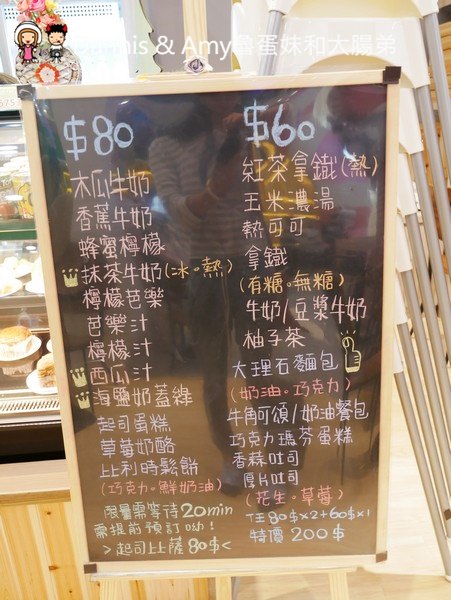 Dennis & Amy魯蛋妹和大腸弟
$80
木瓜牛奶
香蕉牛奶
蜂蜜檸檬
抹茶牛奶(冰。熱)
檸檬芭樂
芭樂汁
檸檬汁
西瓜汁
海鹽奶蓋綠
起司蛋糕
草莓奶酪
比利時鬆餅
(巧克力。鮮奶油)
限量需等待20min
需提前預訂呦!
>起司比薩80$<
$60
紅茶拿鐵(熱)
玉米濃湯
熱可可
拿鐵
(有糖。無糖)
牛奶/豆漿牛奶
柚子茶
大理石麵包
(奶油。巧克力)
牛角可頌/奶油餐包
巧克力瑪芬蛋糕
香蒜吐司
厚片吐司
(花生。草莓)
任80$x2+60$x1
特價200$